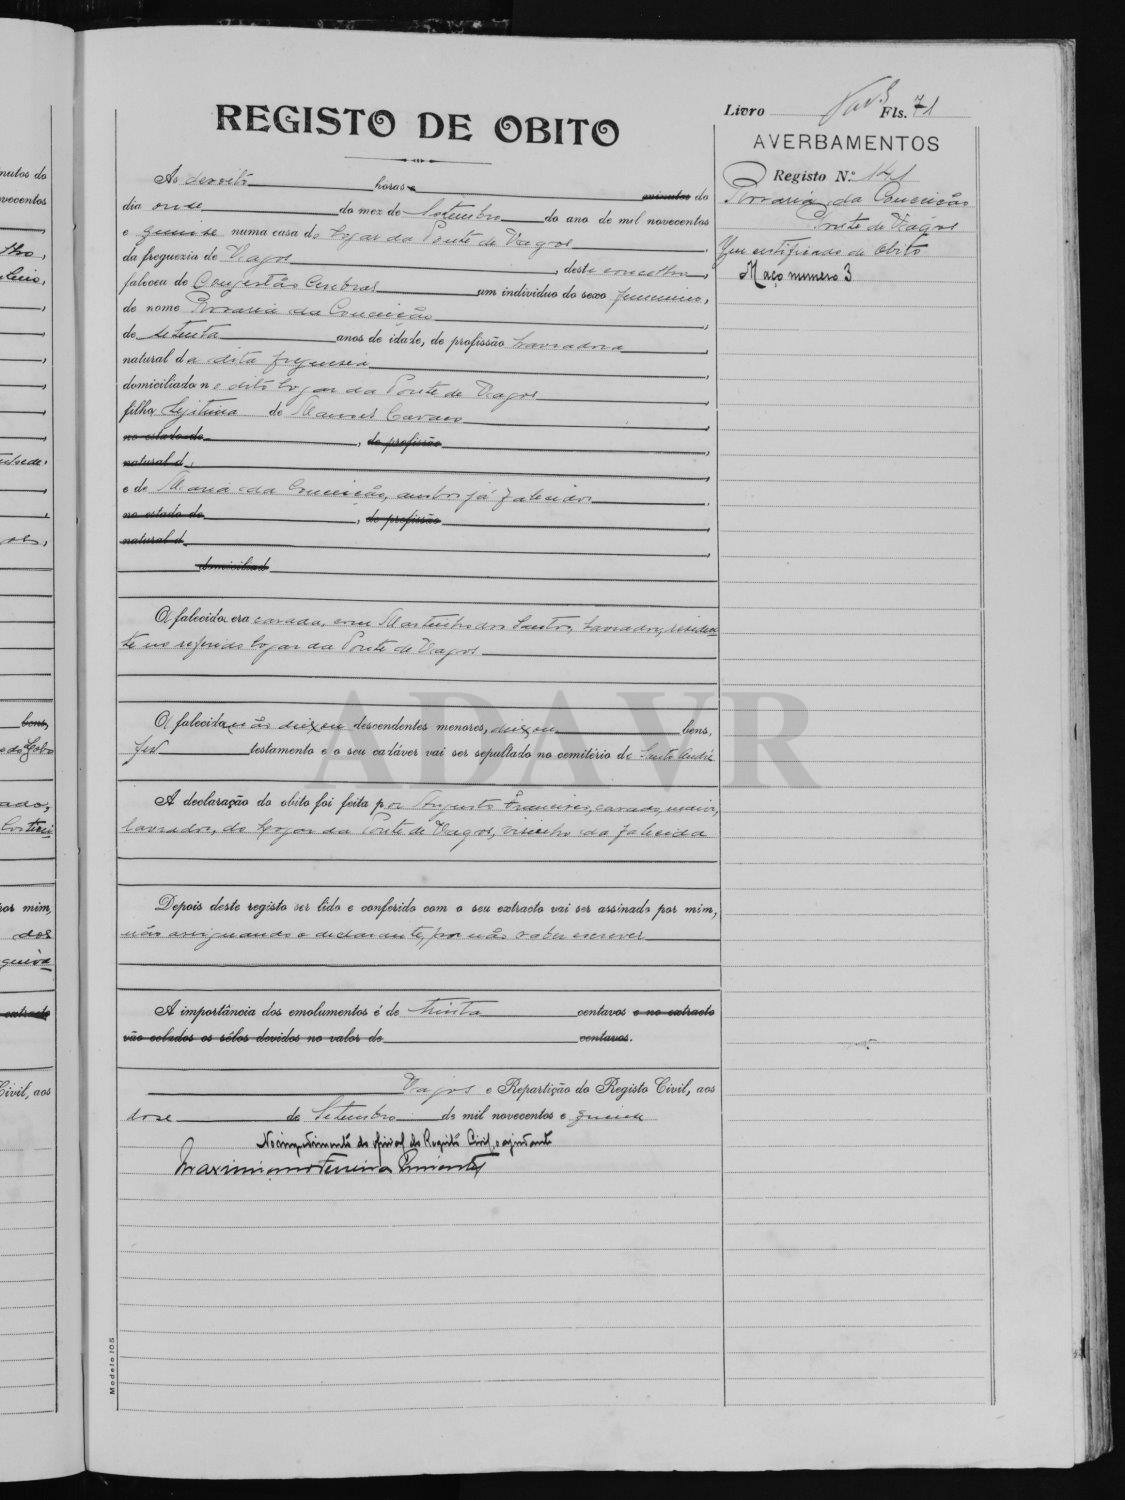 Livro Fls. 71
REGISTO DE OBITO
AVERBAMENTOS
Registo N.º 141
Rosaria da Conceicão
Ponte de Vagos
Tem certificado de obito
Maço numero 3
As dezoito horas e minutos do
dia onze do mez de Setembro do ano de mil novecentos
e quinze numa casa do logar da Ponte de Vagos,
da freguezia de Vagos, deste concelho,
faleceu de Congestão Cerebral um individuo do sexo feminino,
de nome Rosaria da Conceicão,
de setenta anos de idade, de profissão lavradora,
natural da dita freguesia,
domiciliado no dito logar da Ponte de Vagos,
filha legitima de Manuel
no estado de, de profissão,
natural d,
e de Maria da Conceicão, ambos já falecidos,
no estado de, de profissão,
natural d,
domiciliad
A falecida era casada, com Martinho dos Santos, lavrador, residen-
te no referido logar da Ponte de Vagos
A falecida não deixou descendentes menores, deixou bens,
fez testamento e o seu cadáver vai ser sepultado no cemitério de Santo André
A declaração do obito foi feita por Augusto Francisco, casado, maior,
lavrador, do logar da Ponte de Vagos, visinho da falecida
Depois deste registo ser lido e conferido com o seu extracto vai ser assinado por mim,
não assignando o declarante, por não saber escrever
A importância dos emolumentos é de trinta centavos e no extracto
vão colados os sêlos devidos no valor de centavos.
Vagos e Repartição do Registo Civil, aos
doze de Setembro de mil novecentos e quinze
No impedimento do oficial do Registo Civil, o ajudante
Maximiano Ferreira Pimentel
Modelo 105
ADAVR
nutos do
novecentos
bens,
por mim,
dos
extracto
Civil, aos